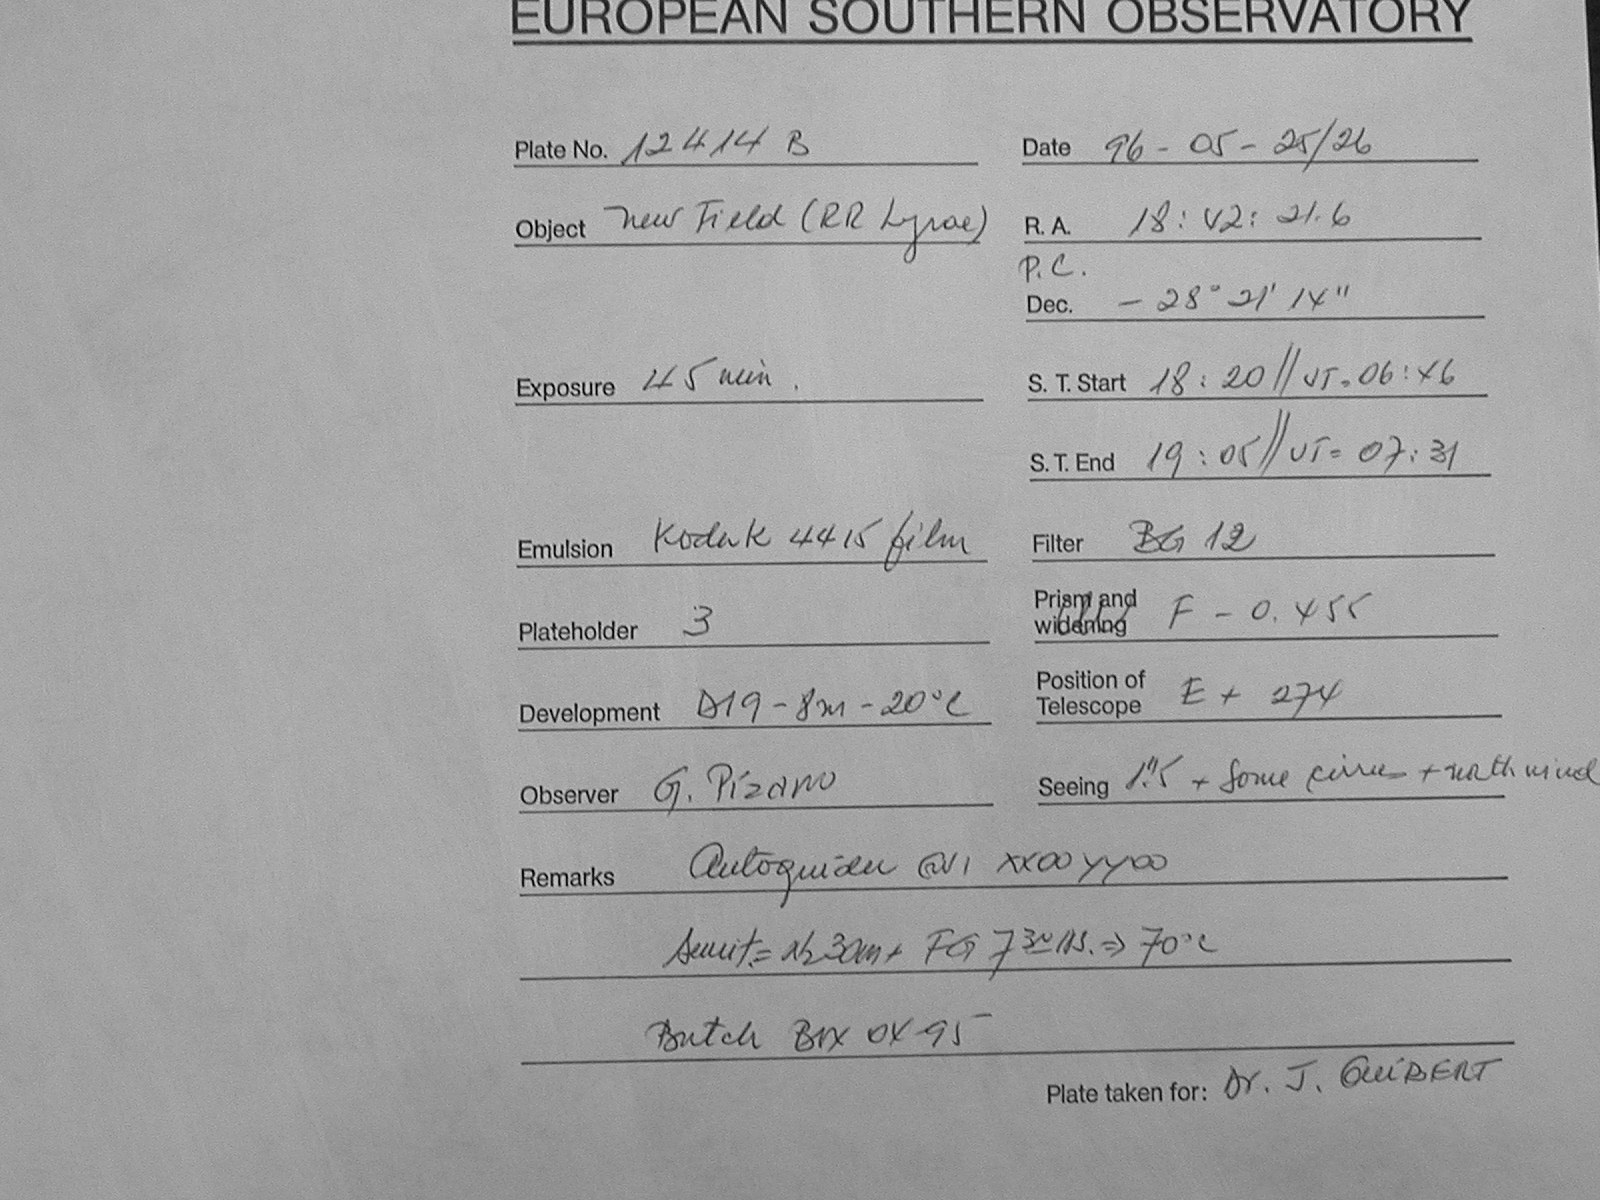 EUROPEAN SOUTHERN OBSERVATORY
Plate No. 12414 B
Date 96 - 05 - 25/26
Object New Field (RR Lyrae)
R. A. 18 : 02 : 21.6
P.C.
Dec. - 28° 21' 14"
Exposure 45 min.
S. T. Start 18 : 20 // UT = 06 : 46
S. T. End 19 : 05 // UT = 07 : 31
Emulsion Kodak 4415 film
Filter BG 12
Plateholder 3
Prism and widening F - 0.455
Development D19 - 8m - 20°C
Position of Telescope E + 274
Observer G. Pizarro
Seeing 1."5 + Some cirrus + north wind
Remarks Autoguider @V1 XX00 YY00
30m + FG 7 ⇒ 70°C
Batch BIX 0X-95
Plate taken for: Dr. J. GUIBERT